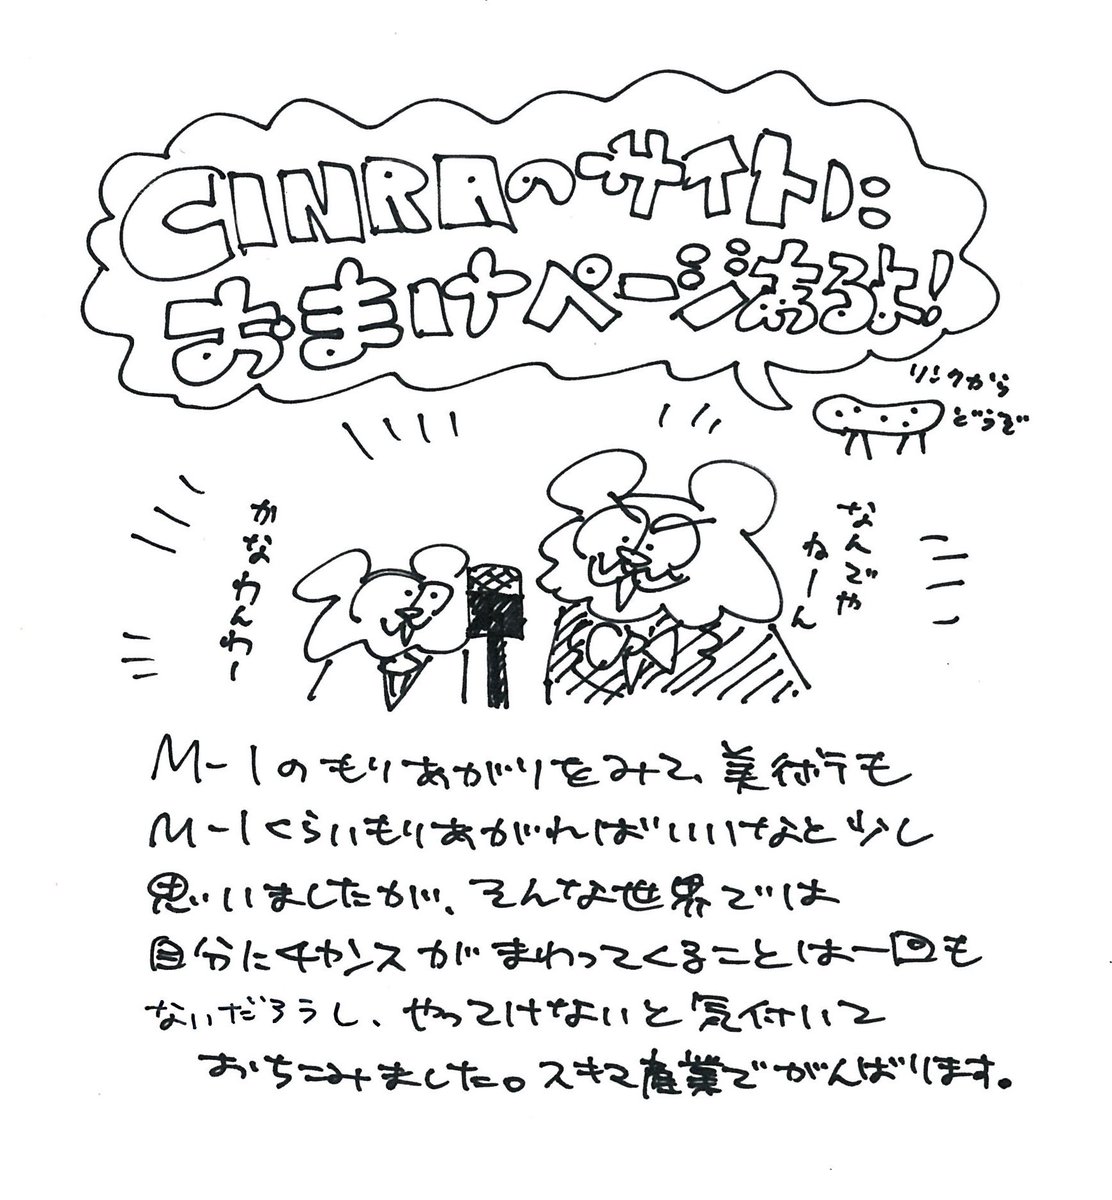 CINRAのサイトに
おまけページあるよ!
リンクから
どうぞ
なんでや
ねーん
かなわんわー
M-1のもりあがりをみて、美術も
M-1くらいもりあがればいいなと少し
思いましたが、そんな世界では
自分にチャンスがまわってくることは一回も
ないだろうし、やってけないと気付いて
おちこみました。スキマ産業でがんばります。